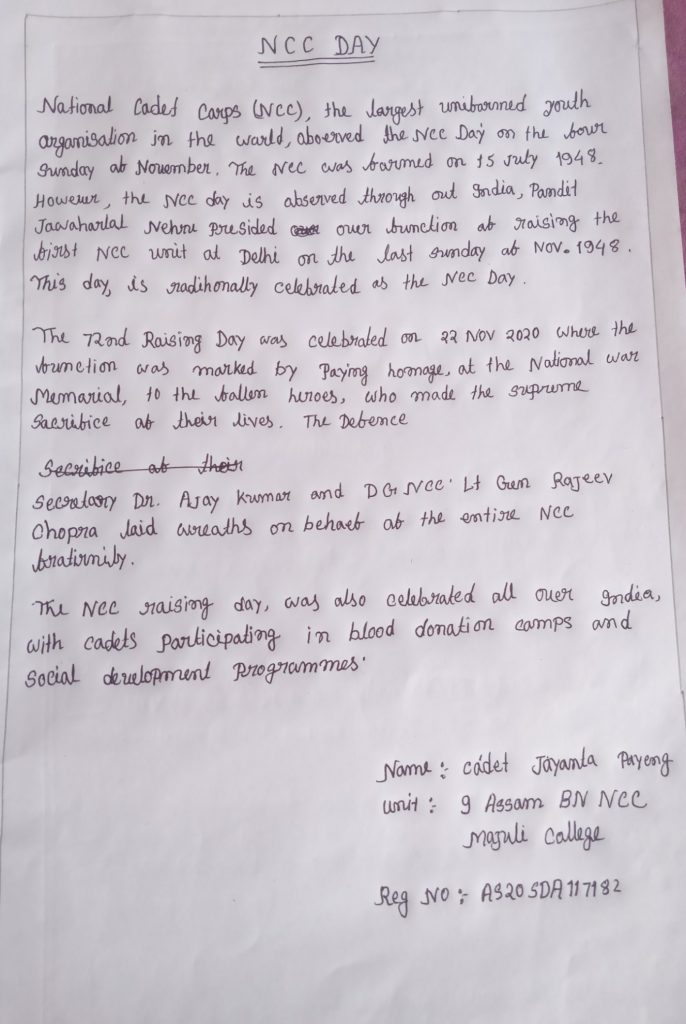 NCC DAY
National Cadet Corps (NCC), the largest unibormed youth
organisation in the world, aboerved the NCC Day on the bour
Sunday ab November. The NCC was barmed on 15 July 1948.
However, the NCC day is observed through out India, Pandit
Jawaharlal Nehru presided over bunction ab raising the
birst NCC unit at Delhi on the last sunday ab NOV. 1948.
This day, is radihonally celebrated as the NCC Day.
The 72nd Raising Day was celebrated on 22 NOV 2020 where the
bunction was marked by Paying homage, at the National war
Memarial, to the ballen heroes, who made the supreme
Sacribice ab their lives. The Debence
Secribice ab their
Secretary Dr. Ajay Kumar and DG NCC' Lt Gen Rajeev
Chopra laid wreaths on behaeb ab the entire NCC
bratirniby.
The NCC raising day, was also celebrated all over India,
with cadets participating in blood donation camps and
Social development Programmes'
Name :- cadet Jayanta Payeng
unit :- 9 Assam BN NCC
Majuli College
Reg NO :- AS20SDA117182